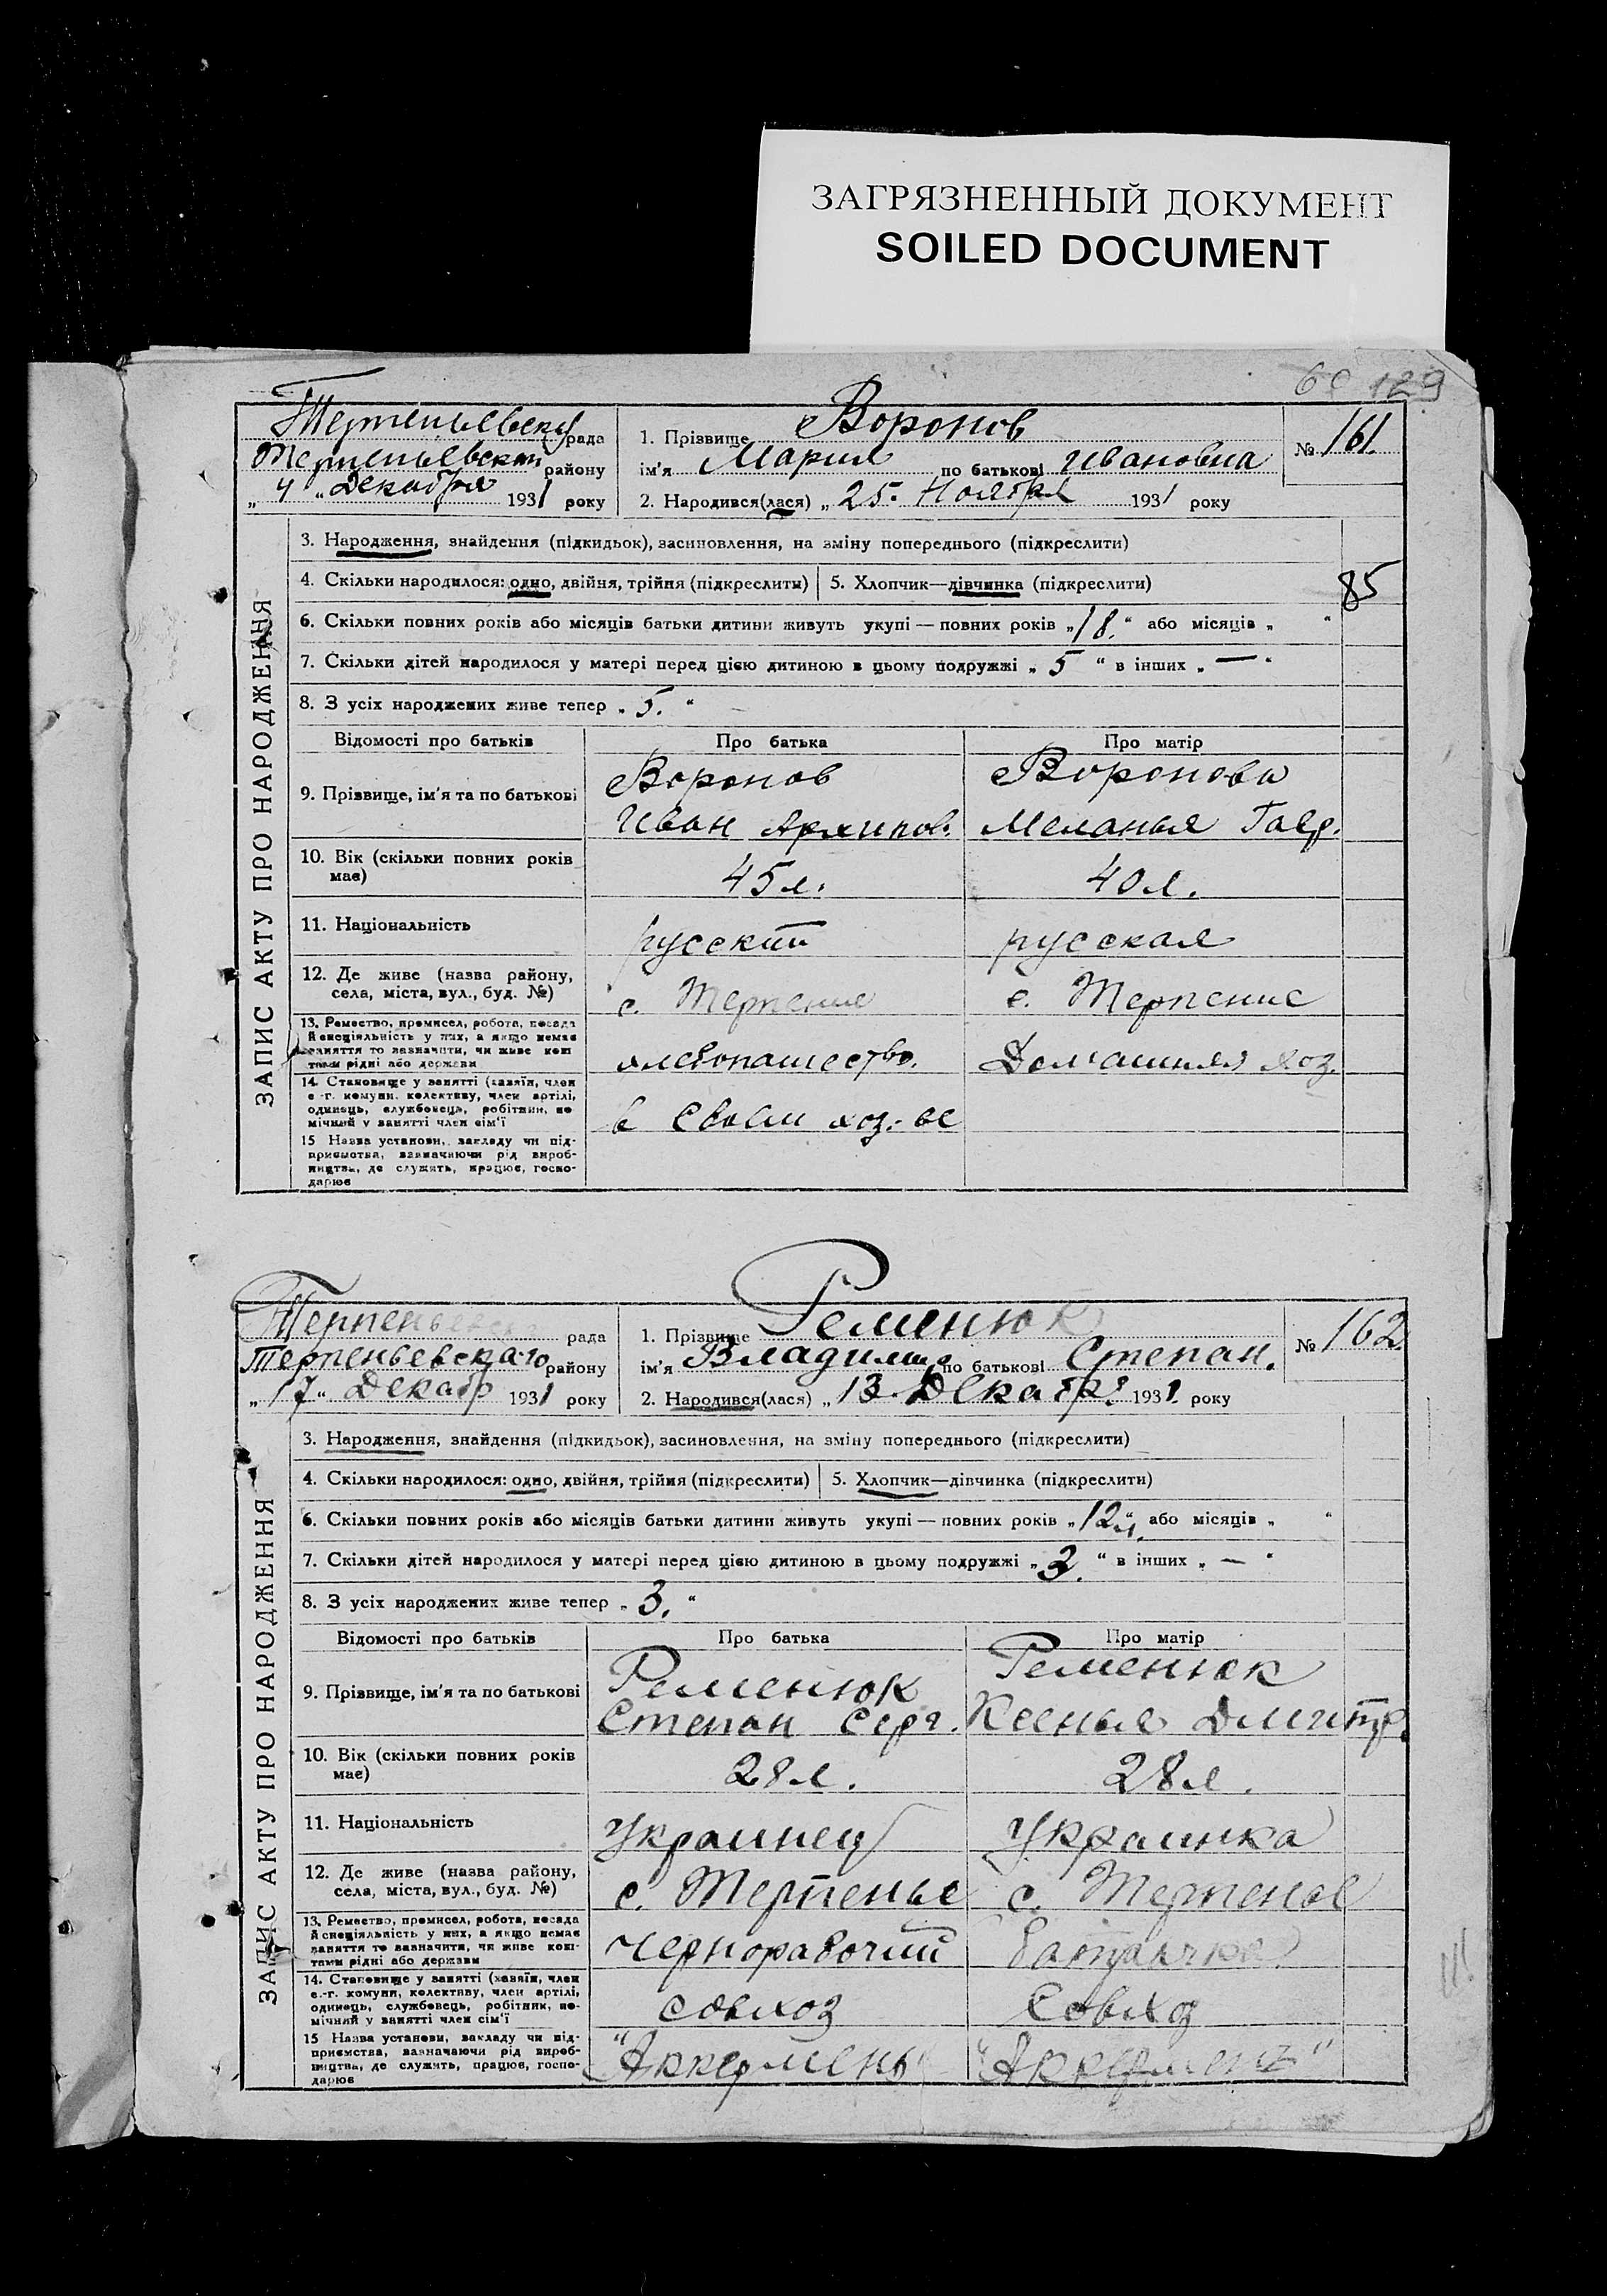 ЗАГРЯЗНЕННЫЙ ДОКУМЕНТ
SOILED DOCUMENT
129
рада
району
„ 4 „ Декабря 1931 року
1. Прізвище Воронов
ім'я Мария по батькові Ивановна
2. Народився(лася) „ 25. Ноября 1931 року
№ 161.
ЗАПИС АКТУ ПРО НАРОДЖЕННЯ
3. Народження, знайдення (підкидьок), засиновлення, на зміну попереднього (підкреслити)
4. Скільки народилося: одно, двійня, трійня (підкреслити) 5. Хлопчик—дівчинка (підкреслити)
85
6. Скільки повних років або місяців батьки дитини живуть укупі — повних років „18.“ або місяців „ “
7. Скільки дітей народилося у матері перед цією дитиною в цьому подружжі „ 5 “ в інших „ — “
8. З усіх народжених живе тепер „ 5. “
Відомості про батьків Про батька Про матір
9. Прізвище, ім'я та по батькові
Воронов Воронова
Иван Архипов. Меланья Гавр.
10. Вік (скільки повних років має)
45 л. 40 л.
11. Національність
русский русская
12. Де живе (назва району, села, міста, вул., буд. №)
с. Терпение с. Терпение
13. Ремество, промисел, робота, посада й спеціяльність у них, а якщо немає заняття то зазначити, чи живе коштами рідні або держави
хлебопашество. Домашняя хоз.
14. Становище у занятті (хазяїн, член с.-г. комуни, колективу, член артілі, одинець, службовець, робітник, помічний у занятті член сім'ї
в своем хоз-ве
15 Назва установи, закладу чи підприємства, зазначаючи рід виробництва, де служить, працює, господарює
рада
Терпеньевского району
„ 17 „ Декабр 1931 року
1. Прізвище Ременюк
ім'я Владимир по батькові Степан.
2. Народився(лася) „ 13 Декабря 1931. року
№ 162
ЗАПИС АКТУ ПРО НАРОДЖЕННЯ
3. Народження, знайдення (підкидьок), засиновлення, на зміну попереднього (підкреслити)
4. Скільки народилося: одно, двійня, трійня (підкреслити) 5. Хлопчик—дівчинка (підкреслити)
6. Скільки повних років або місяців батьки дитини живуть укупі — повних років „12“ або місяців „ “
7. Скільки дітей народилося у матері перед цією дитиною в цьому подружжі „ 3. “ в інших „ — “
8. З усіх народжених живе тепер „ 3. “
Відомості про батьків Про батька Про матір
9. Прізвище, ім'я та по батькові
Ременюк Ременюк
Степан Серг. Ксенья Дмитр.
10. Вік (скільки повних років має)
28 л. 28 л.
11. Національність
Украинец Украинка
12. Де живе (назва району, села, міста, вул., буд. №)
с. Терпенье с. Терпенье
13. Ремество, промисел, робота, посада й спеціяльність у них, а якщо немає заняття то зазначити, чи живе коштами рідні або держави
Чернорабочий батрачка
14. Становище у занятті (хазяїн, член с.-г. комуни, колективу, член артілі, одинець, службовець, робітник, помічний у занятті член сім'ї
совхоз Совхоз
15 Назва установи, закладу чи підприємства, зазначаючи рід виробництва, де служить, працює, господарює
"Аккермень "Аккермень"